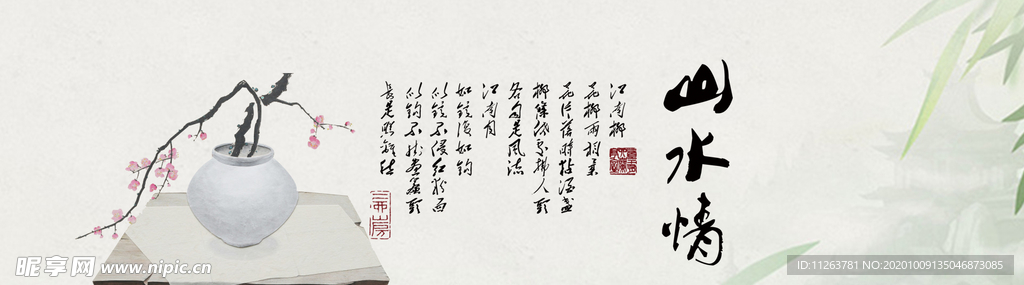 山水情
江南柳
花柳两相柔
花片落时黏酒盏
柳条低处拂人头
各自是风流
江南月
如镜复如钩
似镜不侵红粉面
似钩不挂画帘头
长是照离愁
昵享网 www.nipic.cn
ID:11263781 NO:20201009135046873085